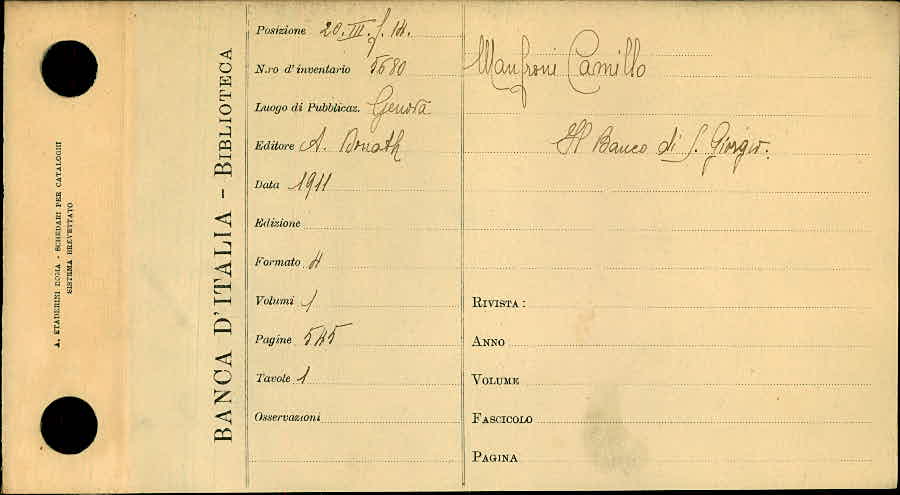 A. STADERINI ROMA - SCHEDARI PER CATALOGHI
SISTEMA BREVETTATO
BANCA D'ITALIA - BIBLIOTECA
Posizione 20. III. f. 14.
N.ro d'inventario 5680
Luogo di Pubblicaz. Genova
Editore A. Donath
Data 1911
Edizione
Formato 4
Volumi 1
Pagine
Tavole 1
Osservazioni
Manfroni Camillo
Il Banco di S. Giorgio.
RIVISTA:
ANNO
VOLUME
FASCICOLO
PAGINA